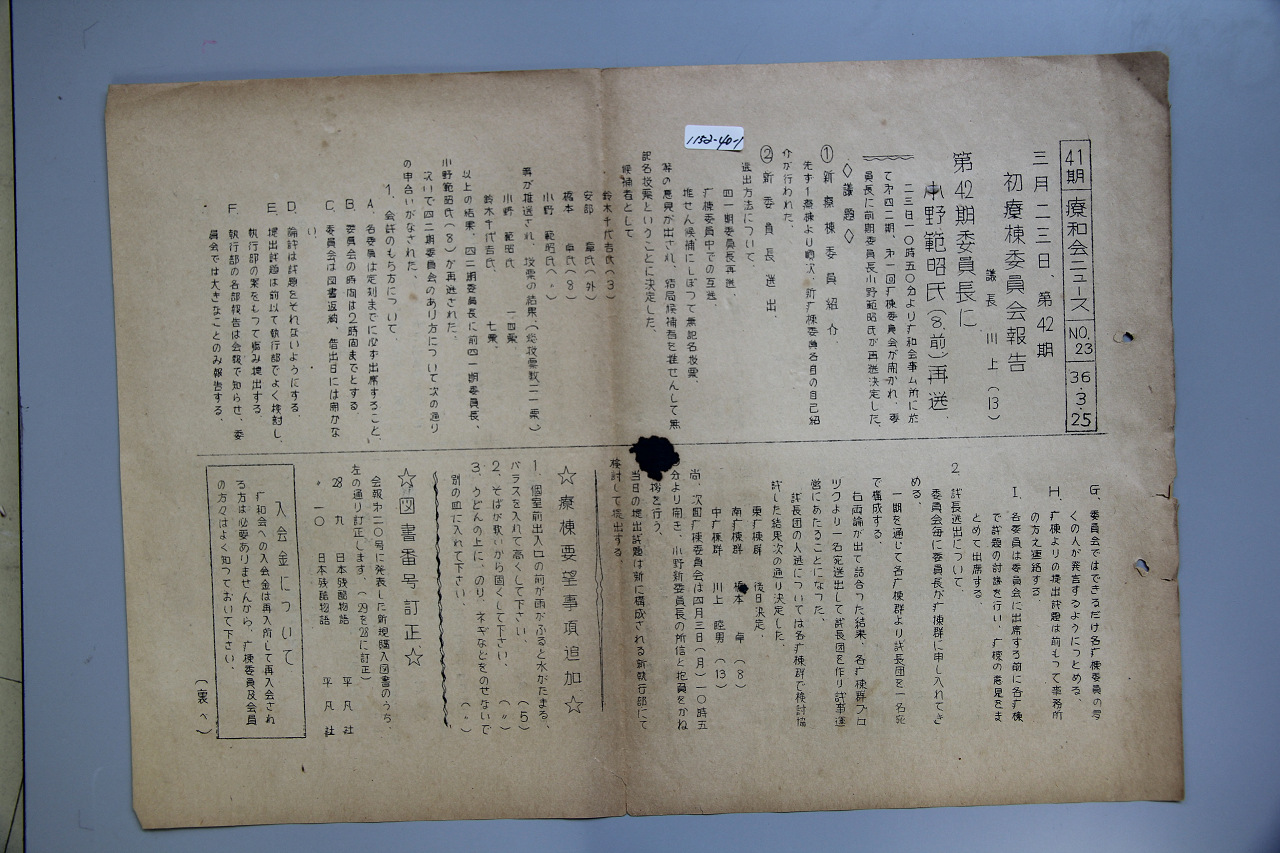 1152-40-1
41期 療和会ニュース NO.23 36.3.25
三月二三日、第42期
初療棟委員会報告
議長 川上(13)
第42期委員長に
小野範昭氏(8.前)再選
二三日一〇時五〇分より疒和会事ム所に於
て第四二期、第一回疒棟委員会が開かれ、委
員長に前期委員長小野範昭氏が再選決定した。
◇議題◇
①新療棟委員紹介
先ず1療棟より順次、新疒棟委員各自の自己紹
介が行われた。
②新委員長選出
選出方法について、
四一期委員長再選、
疒棟委員中での互選、
推せん候補にしぼって無記名投票、
等の意見が出され、結局候補者を推せんして無
記名投票ということに決定した。
候補者として
鈴木千代吉氏(3)
安部 章氏(外)
橋本 卓氏(8)
小野 範昭氏(〃)
等が推選され、投票の結果(総投票数二一票)
小野 範昭氏 一四票
鈴木千代吉氏、 七票、
以上の結果、四二期委員長に前四一期委員長、
小野範昭氏(8)が再選された。
次いで四二期委員会のあり方について次の通り
の申合いがなされた。
1、会許のもち方について、
A、各委員は定刻までに必ず出席すること、
B、委員会の時間は2時間までとする
C、委員会は図書返納、借出日には開かな
い、
D、論許は許題をそれないようにする、
E、提出許題は前以て執行部でよく検討し、
執行部の案をもって臨み提出する、
F、執行部の各部報告は会報で知らせ、委
員会では大きなことのみ報告する
G、委員会ではできるだけ各疒棟委員の多
くの人が発言するようにつとめる、
H、疒棟よりの提出許題は前もって事務所
の方え連絡する、
I、各委員は委員会に出席する前に各疒棟
で許題の討議を行い、疒棟の意見をま
とめて出席する、
2、許長選出について、
委員会毎に委員長が疒棟群に申し入れてき
める、
一期を通じて各疒棟群より許長団を一名宛
で構成する、
右両論が出て話合った結果、各疒棟群ブロ
ックより一名宛選出して許長団を作り許事運
営にあたることになった、
許長団の人選については各疒棟群で検討協
許した結果次の通り決定した、
東疒棟群 後日決定、
南疒棟群 橋本 卓(8)
中疒棟群 川上 睦男(13)
尚、次回疒棟委員会は四月三日(月)一〇時五
分より開き、小野新委員長の所信と抱負をかね
挨拶を行う、
当日の提出許題は新に構成される新執行部にて
検討して提出する、
☆療棟要望事項追加☆
1、個室前出入口の前が雨がふると水がたまる、
バラスを入れて高くして下さい、(5)
2、そばが軟いから固くして下さい、(〃)
3、うどんの上に、のり、ネギなどをのせないで
別の皿に入れて下さい、(〃)
☆図書番号訂正☆
会報第二〇号に発表した新規購入図書のうち
左の通り訂正します、(29を28に訂正)
28 九 日本残酷物語 平凡社
〃 一〇 日本残酷物語 平凡社
入会金について
疒和会への入会金は再入所して再入会され
る方は必要ありませんから、疒棟委員及会員
の方々はよく知っておいて下さい、
(裏へ)